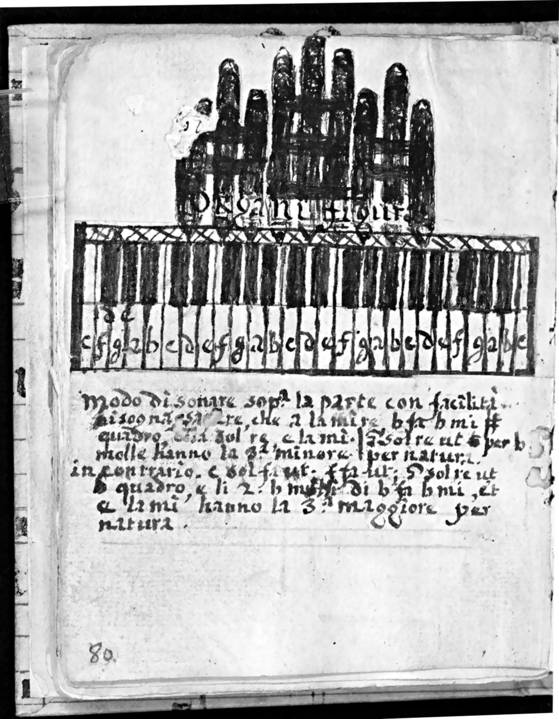 Organi figura
e f g a b c d e f g a b c d e f g a b c d e f g a b c
Modo di sonare sop.ª la parte con facilità
bisogna sapere, che a la mi re, b fa b mi #
quadro, solre, e la mi. | g solre ut b per b
molle hanno la 3.ª minore | per natura.
in contrario. c solfaut. f fa-ut; g solre ut
b quadro, e li 2. b molli di b fa b mi, et
e la mi hanno la 3.ª maggiore per
natura.
80.